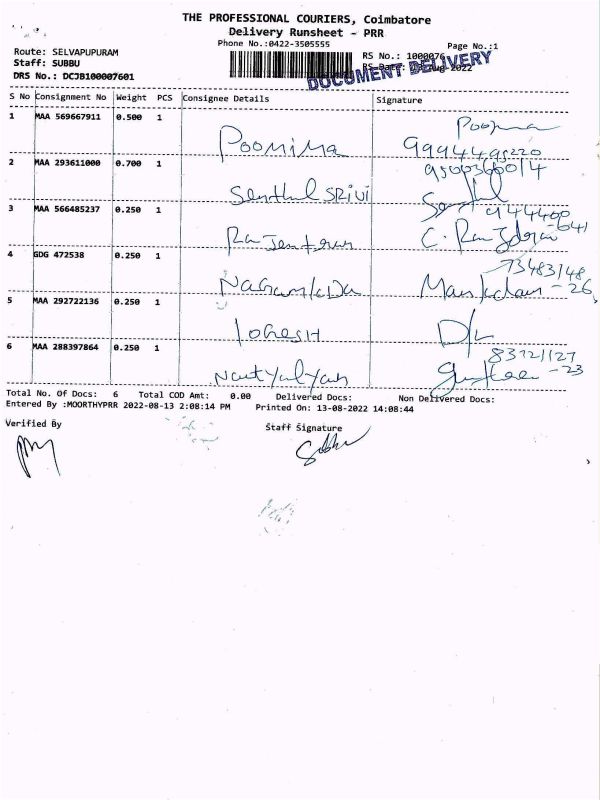 THE PROFESSIONAL COURIERS, Coimbatore
Delivery Runsheet - PRR
Phone No.:0422-3505555
Page No.:1
Route: SELVAPUPURAM
RS No.: 1000076
Staff: SUBBU
RS Date: Aug-2022
DOCUMENT DELIVERY
DRS No.: DCJB100007601
S No Consignment No Weight PCS Consignee Details Signature
1 MAA 569667911 0.500 1
Poornima
2 MAA 293611000 0.700 1
9500360014
Senthil SRIVI
3 MAA 566485237 0.250 1
944400
Rajenteran
4 GDG 472538 0.250 1
73483148
-26
5 MAA 292722136 0.250 1
LOGESH D/L
6 MAA 288397864 0.250 1
-23
Total No. Of Docs: 6 Total COD Amt: 0.00 Delivered Docs: Non Delivered Docs:
Entered By :MOORTHYPRR 2022-08-13 2:08:14 PM Printed On: 13-08-2022 14:08:44
Verified By Staff Signature
Subbu